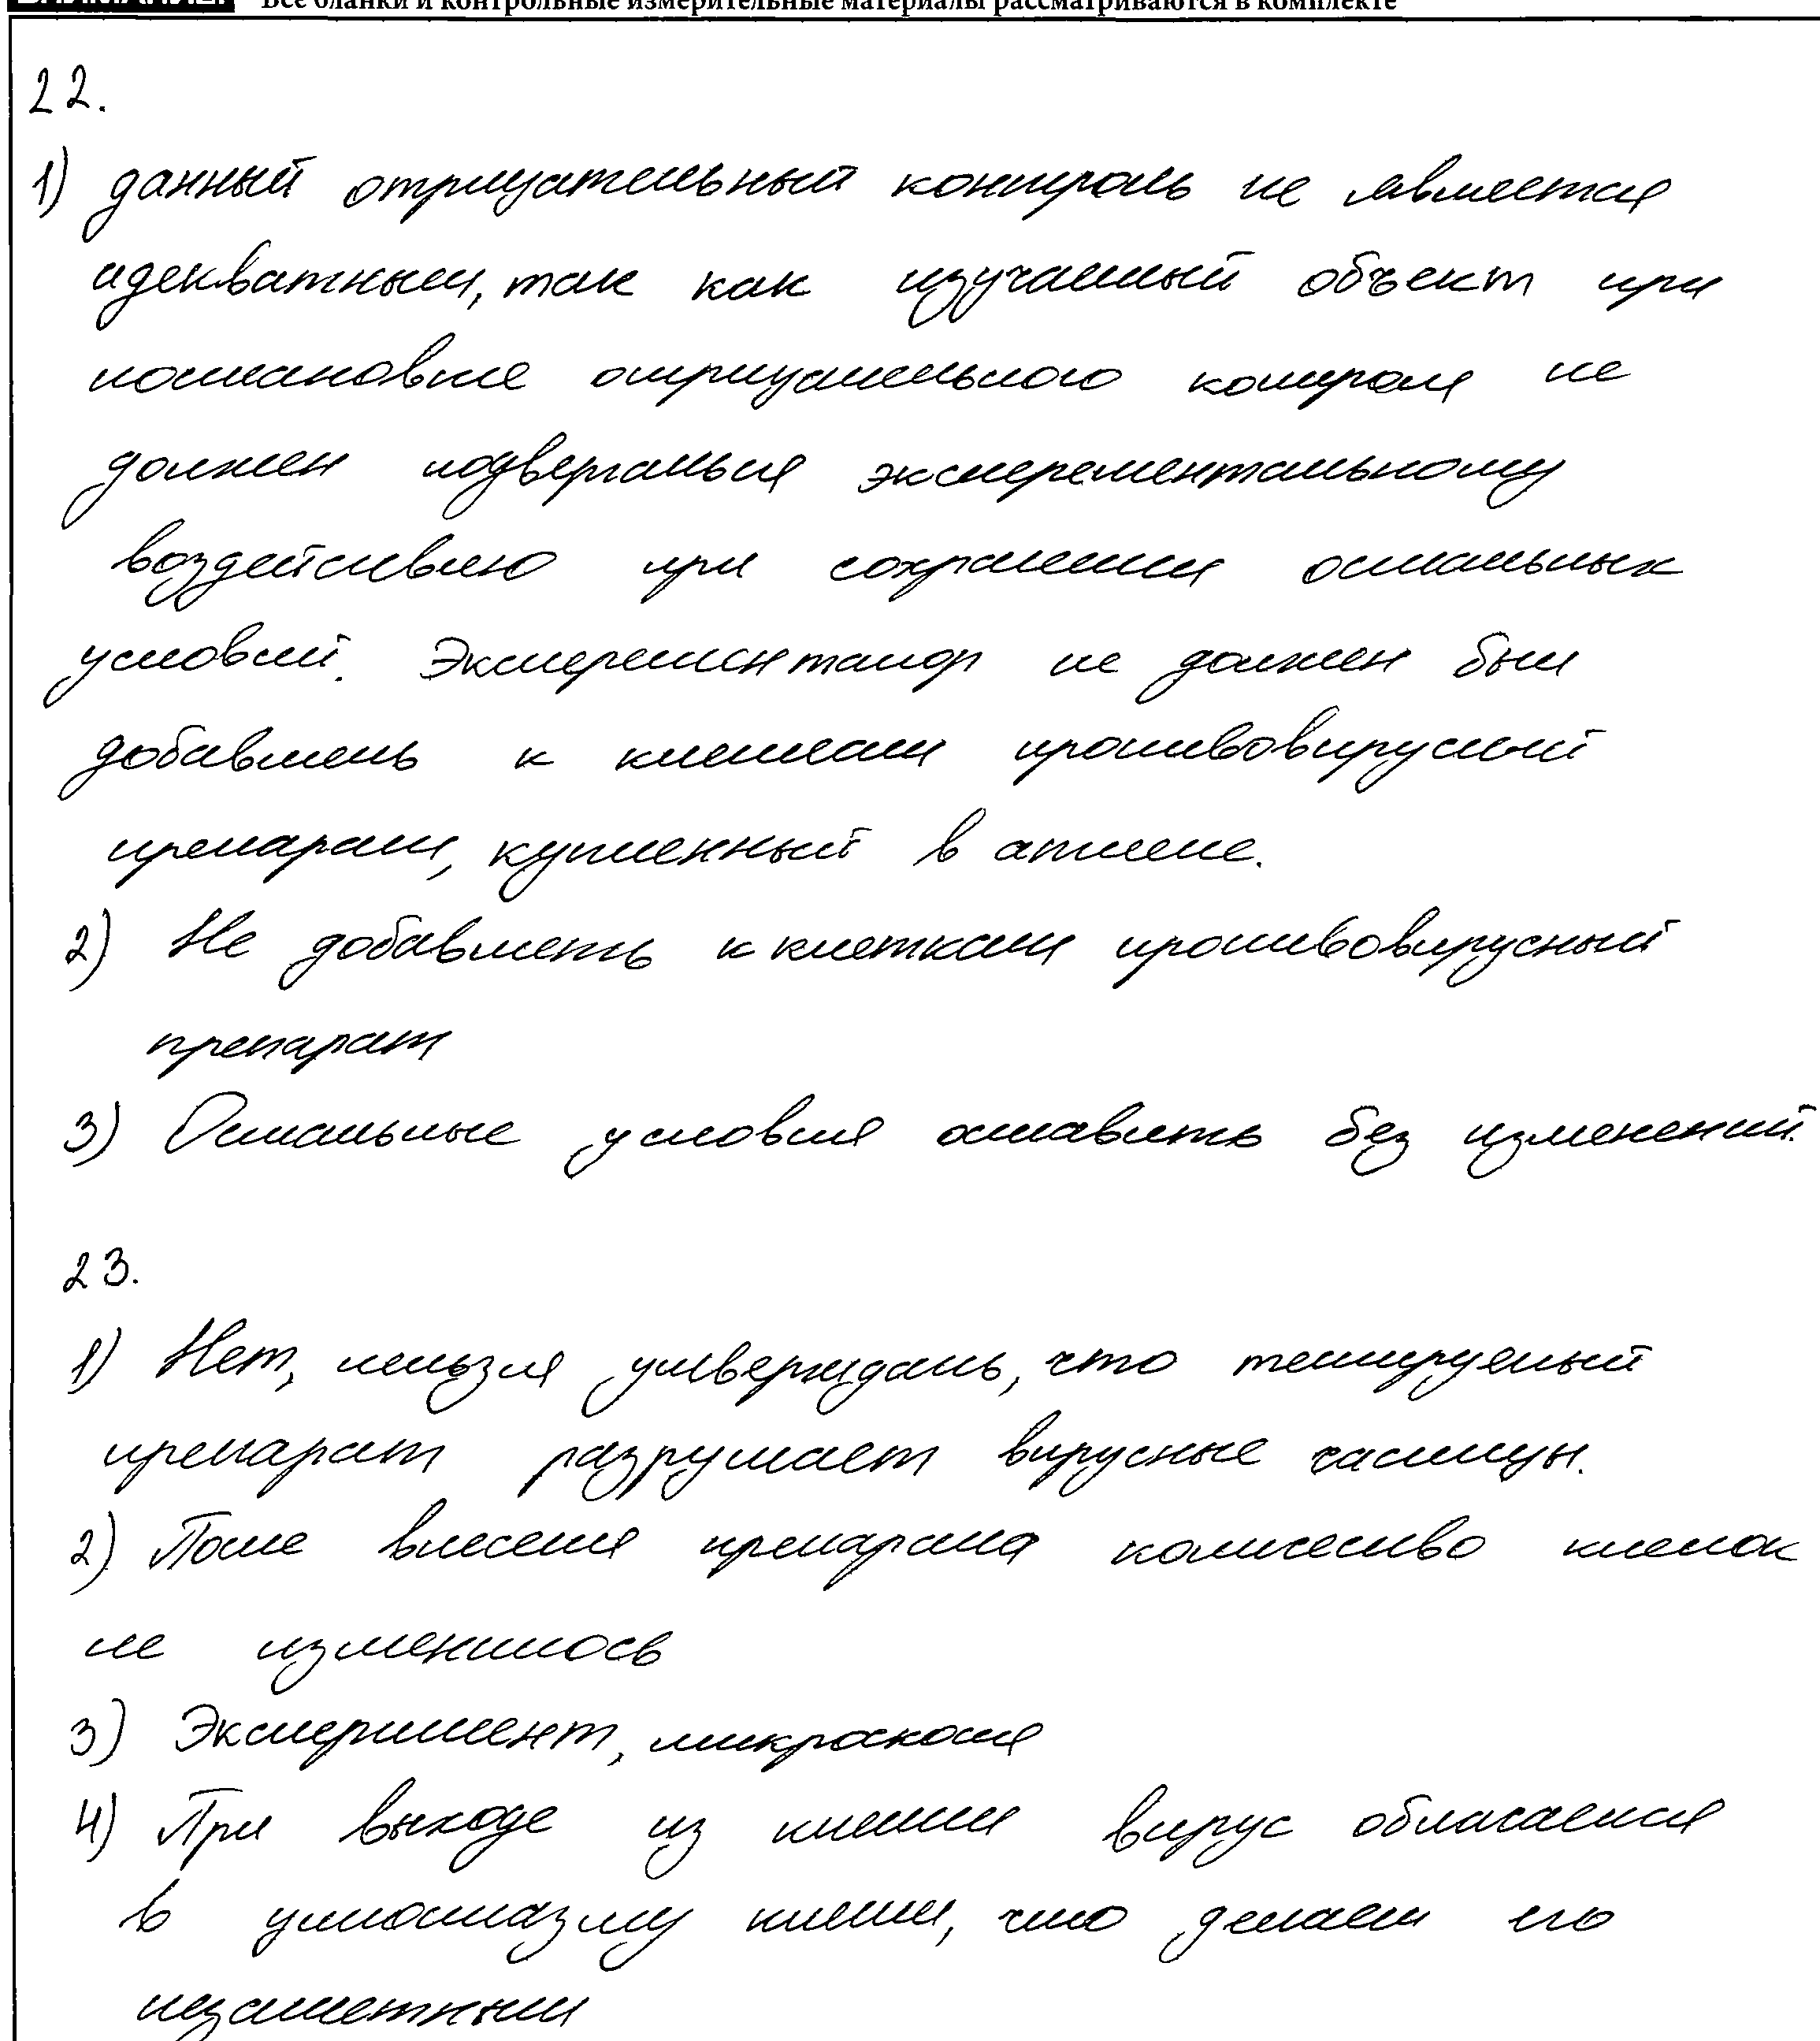 Все бланки и контрольные измерительные материалы рассматриваются в комплекте
22.
1) данный отрицательный контроль не является
адекватным, так как изучаемый объект при
постановке отрицательного контроля не
должен подвергаться эксперементальному
воздействию при сохранении остальных
условий. Экспериментатор не должен был
добавлять к клеткам противовирусный
препарат, купленный в аптеке.
2) Не добавлять к клеткам противовирусный
препарат
3) Остальные условия оставить без изменений.
23.
1) Нет, нельзя утверждать, что тестируемый
препарат разрушает вирусные частицы.
2) После внесения препарата количество клеток
не изменилось
3) Эксперимент, микроскопия
4) При выходе из клетки вирус облагается
в цитоплазму клетки, что делает его
незаметным